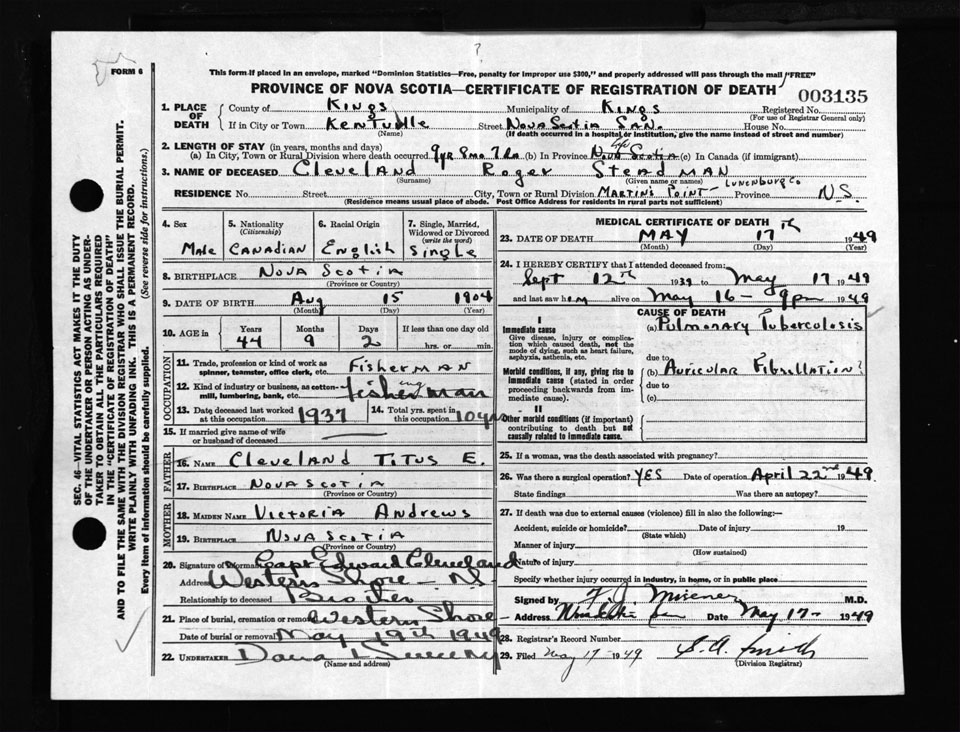 FORM 6
This form if placed in an envelope, marked "Dominion Statistics—Free, penalty for improper use $300," and properly addressed will pass through the mail "FREE"
PROVINCE OF NOVA SCOTIA—CERTIFICATE OF REGISTRATION OF DEATH
003135
SEC. 46—VITAL STATISTICS ACT MAKES IT THE DUTY
OF THE UNDERTAKER OR PERSON ACTING AS UNDER-
TAKER TO OBTAIN ALL THE PARTICULARS REQUIRED
IN THE "CERTIFICATE OF REGISTRATION OF DEATH"
AND TO FILE THE SAME WITH THE DIVISION REGISTRAR WHO SHALL ISSUE THE BURIAL PERMIT.
WRITE PLAINLY WITH UNFADING INK. THIS IS A PERMANENT RECORD.
Every item of information should be carefully supplied. (See reverse side for instructions.)
1. PLACE OF DEATH
County of Kings Municipality of Kings Registered No.
(For use of Registrar General only)
If in City or Town Kentville Street Nova Scotia San. House No.
(Name) (If death occurred in a hospital or institution, give the name instead of street and number)
2. LENGTH OF STAY (in years, months and days)
(a) In City, Town or Rural Division where death occurred 9yr 8mo 7da (b) In Province Nova Scotia (c) In Canada (if immigrant)
3. NAME OF DECEASED Cleveland Roger Steadman
(Surname) (Given name or names)
RESIDENCE No. Street City, Town or Rural Division Martins Point - Lunenburg Co Province N.S.
(Residence means usual place of abode. Post Office Address for residents in rural parts not sufficient)
4. Sex Male
5. Nationality (Citizenship) Canadian
6. Racial Origin English
7. Single, Married, Widowed or Divorced (write the word) Single
8. BIRTHPLACE Nova Scotia
(Province or Country)
9. DATE OF BIRTH Aug 15 1904
(Month) (Day) (Year)
10. AGE in Years 44 Months 9 Days 2 If less than one day old hrs. or min.
OCCUPATION
11. Trade, profession or kind of work as spinner, teamster, office clerk, etc. Fisherman
12. Kind of industry or business, as cotton-mill, lumbering, bank, etc. fisherman ing
13. Date deceased last worked at this occupation 1937
14. Total yrs. spent in this occupation 10 yrs
15. If married give name of wife or husband of deceased
FATHER
16. NAME Cleveland Titus E.
17. BIRTHPLACE Nova Scotia
(Province or Country)
MOTHER
18. MAIDEN NAME Victoria Andrews
19. BIRTHPLACE Nova Scotia
(Province or Country)
20. Signature of Informant Capt Edward Cleveland
Address Western Shore - N.S.
Relationship to deceased Brother
21. Place of burial, cremation or removal Western Shore
Date of burial or removal May 19th 1949
22. UNDERTAKER Dana
(Name and address)
MEDICAL CERTIFICATE OF DEATH
23. DATE OF DEATH MAY 17th 1949
(Month) (Day) (Year)
24. I HEREBY CERTIFY that I attended deceased from:
Sept 12th 1939 to May 17 1949
and last saw him alive on May 16 - 9pm 1949
CAUSE OF DEATH
I
Immediate cause
Give disease, injury or complication which caused death, not the mode of dying, such as heart failure, asphyxia, asthenia, etc.
(a) Pulmonary Tuberculosis
due to
Morbid conditions, if any, giving rise to immediate cause (stated in order proceeding backwards from immediate cause).
(b) Auricular Fibrillation?
due to
(c)
II
Other morbid conditions (if important) contributing to death but not causally related to immediate cause.
25. If a woman, was the death associated with pregnancy?
26. Was there a surgical operation? YES Date of operation April 22nd 1949
State findings Was there an autopsy?
27. If death was due to external causes (violence) fill in also the following:—
Accident, suicide or homicide? Date of injury 19
(State which)
Manner of injury
(How sustained)
Nature of injury
Specify whether injury occurred in industry, in home, or in public place
Signed by F. J. Misener M.D.
Address Date May 17- 1949
28. Registrar's Record Number
29. Filed May 17- 1949 Smith
(Division Registrar)